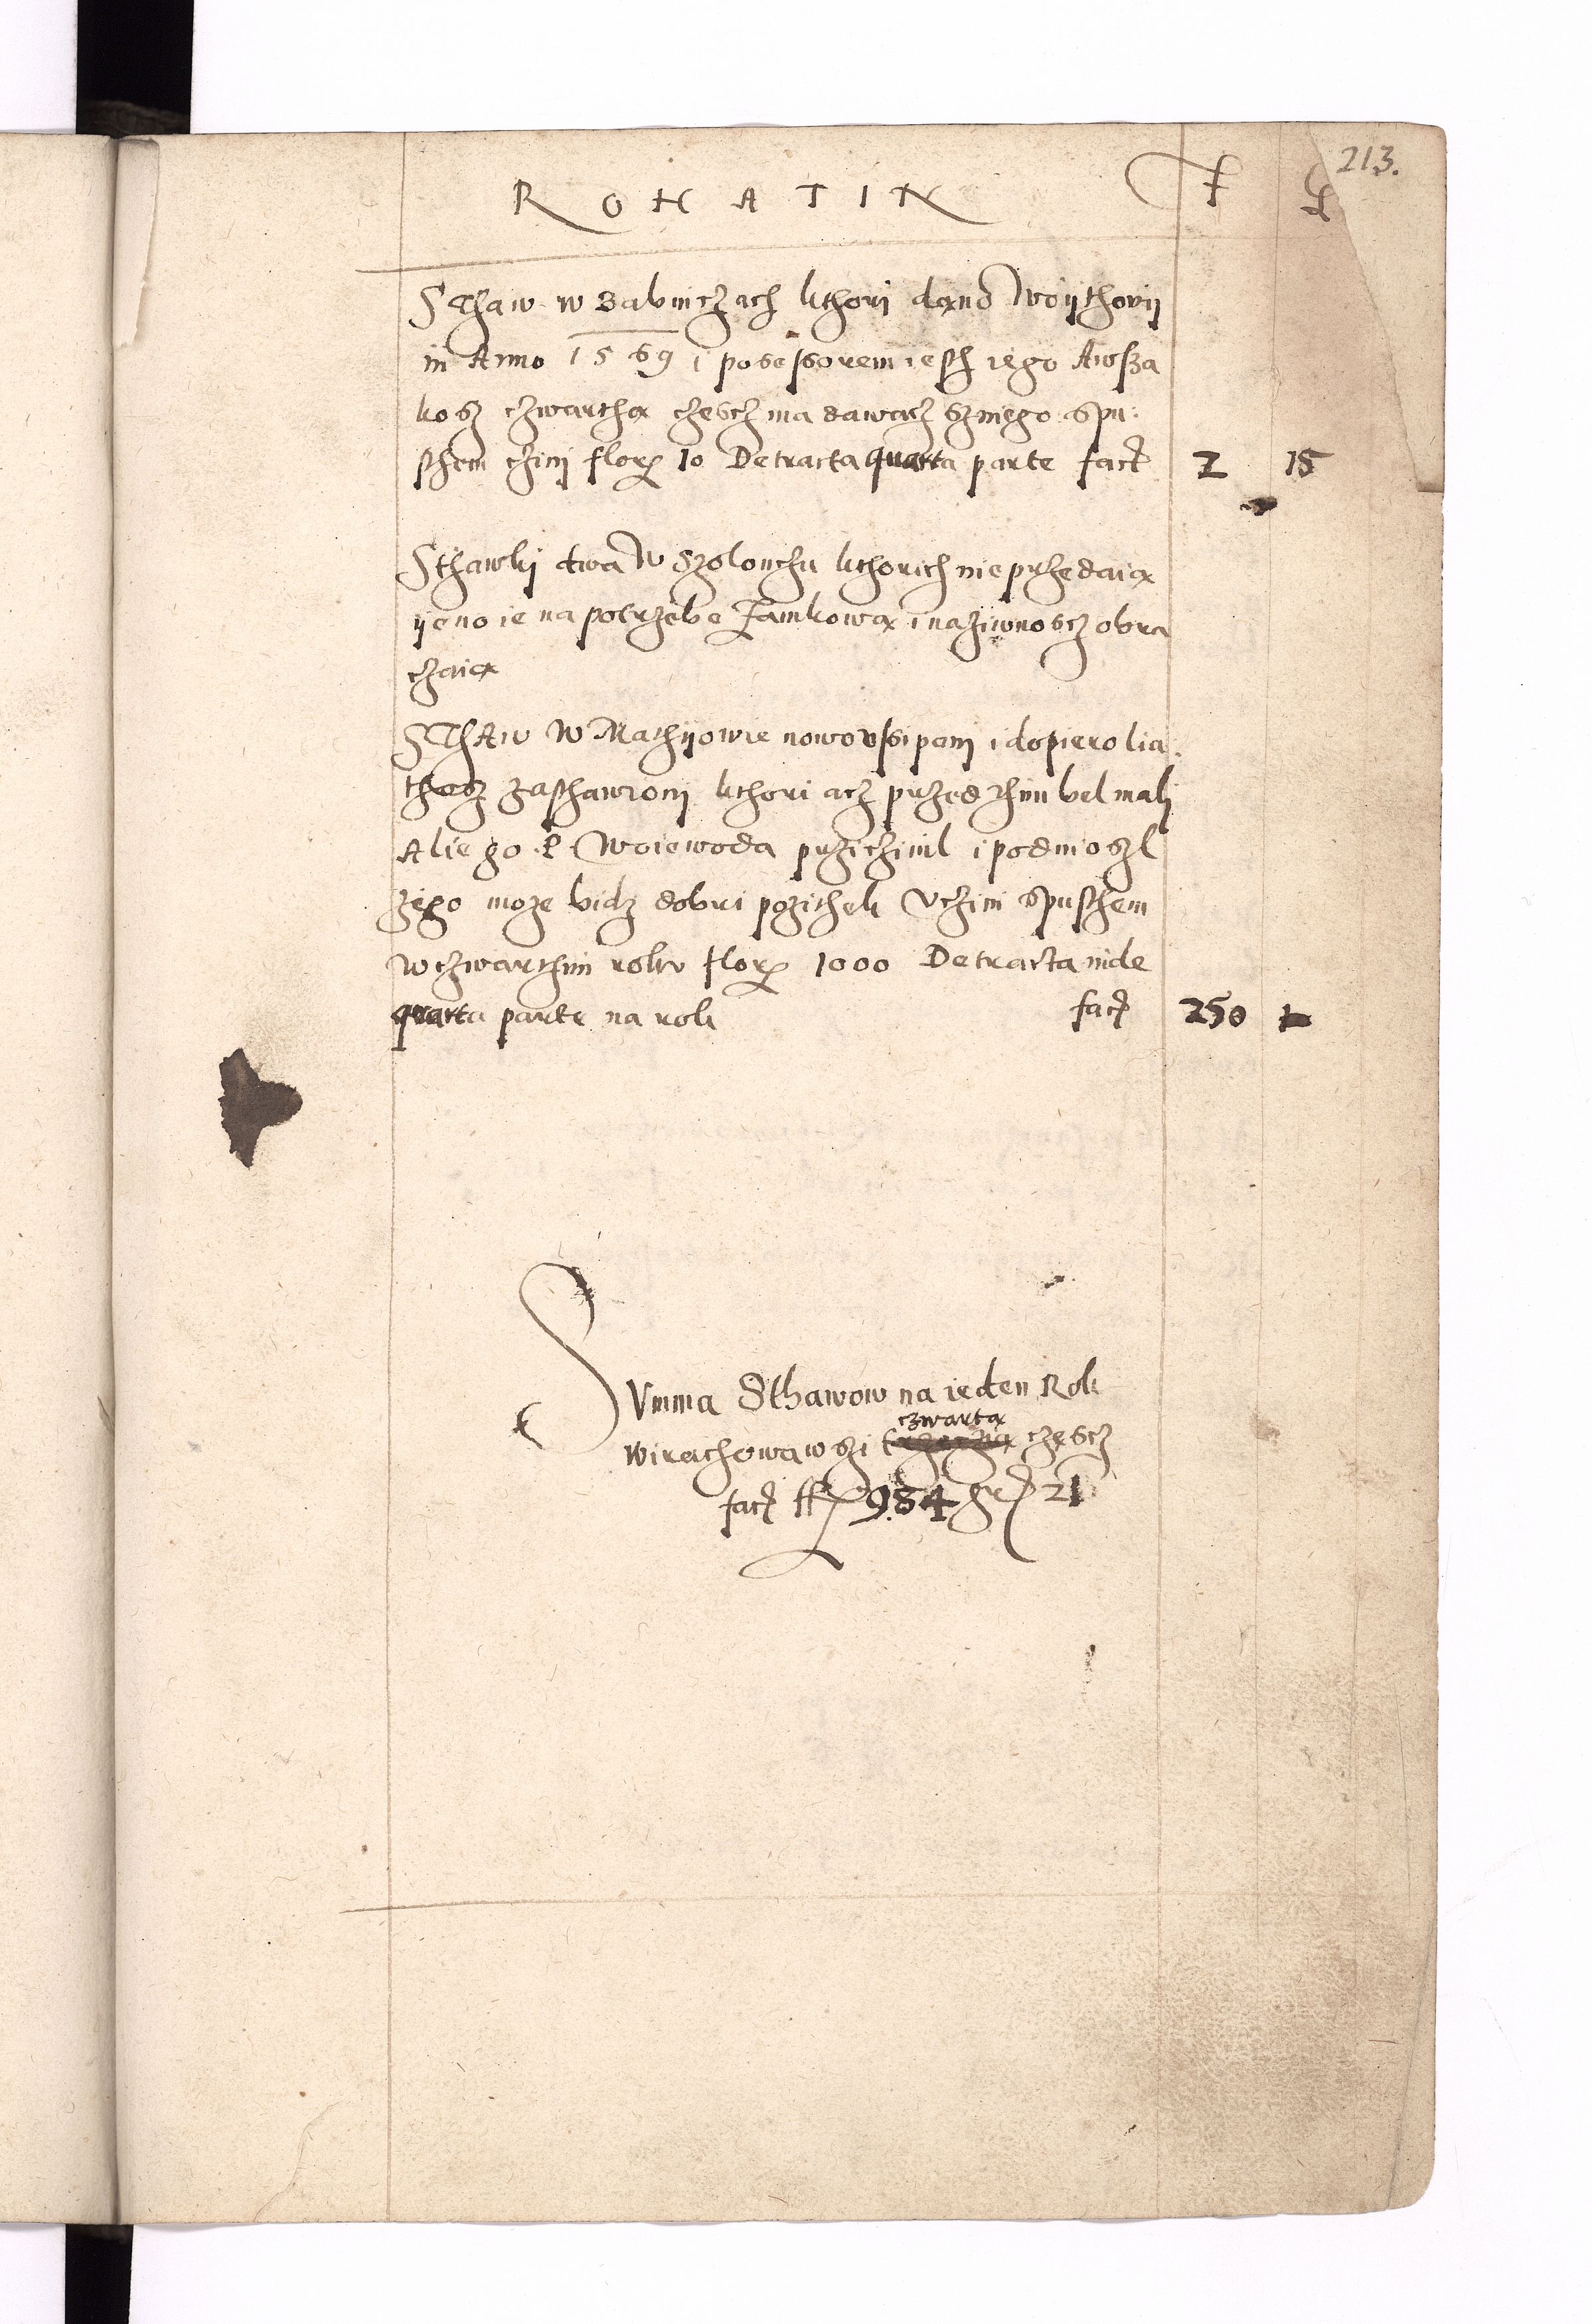 213.
ROHATIN F G
SThaw w Babinczach kthori dąno Woijthowij
in Anno 1569 i posessorem iesth iego Awsza
kosz czwarthą częscz ma dawacz szniego. Spu:
sthem czini flor 10 Detracta quarta parte fact 2 15
Sthawki dwa W Szolonchu kthorich nie przedaią
ijeno ie na potrzebe Zamkową i naziwnoscz obra
czaią
SThaw W Machijowie nowo vssipani i dopiero lia.
thosz zasthawioni kthori acz przed thim bel mali
Alie go P. Woiewoda prziczinil i podniosl
zego moze bidz dobri pozithek Vczini Spusthem
w czwarthim roku flor 1000 Detracta inde
quarta parte na rok fact 250 –
Summa Sthawow na ieden Rok
czwartą
wirachowawszi częscz
fact ff 984 gr 21